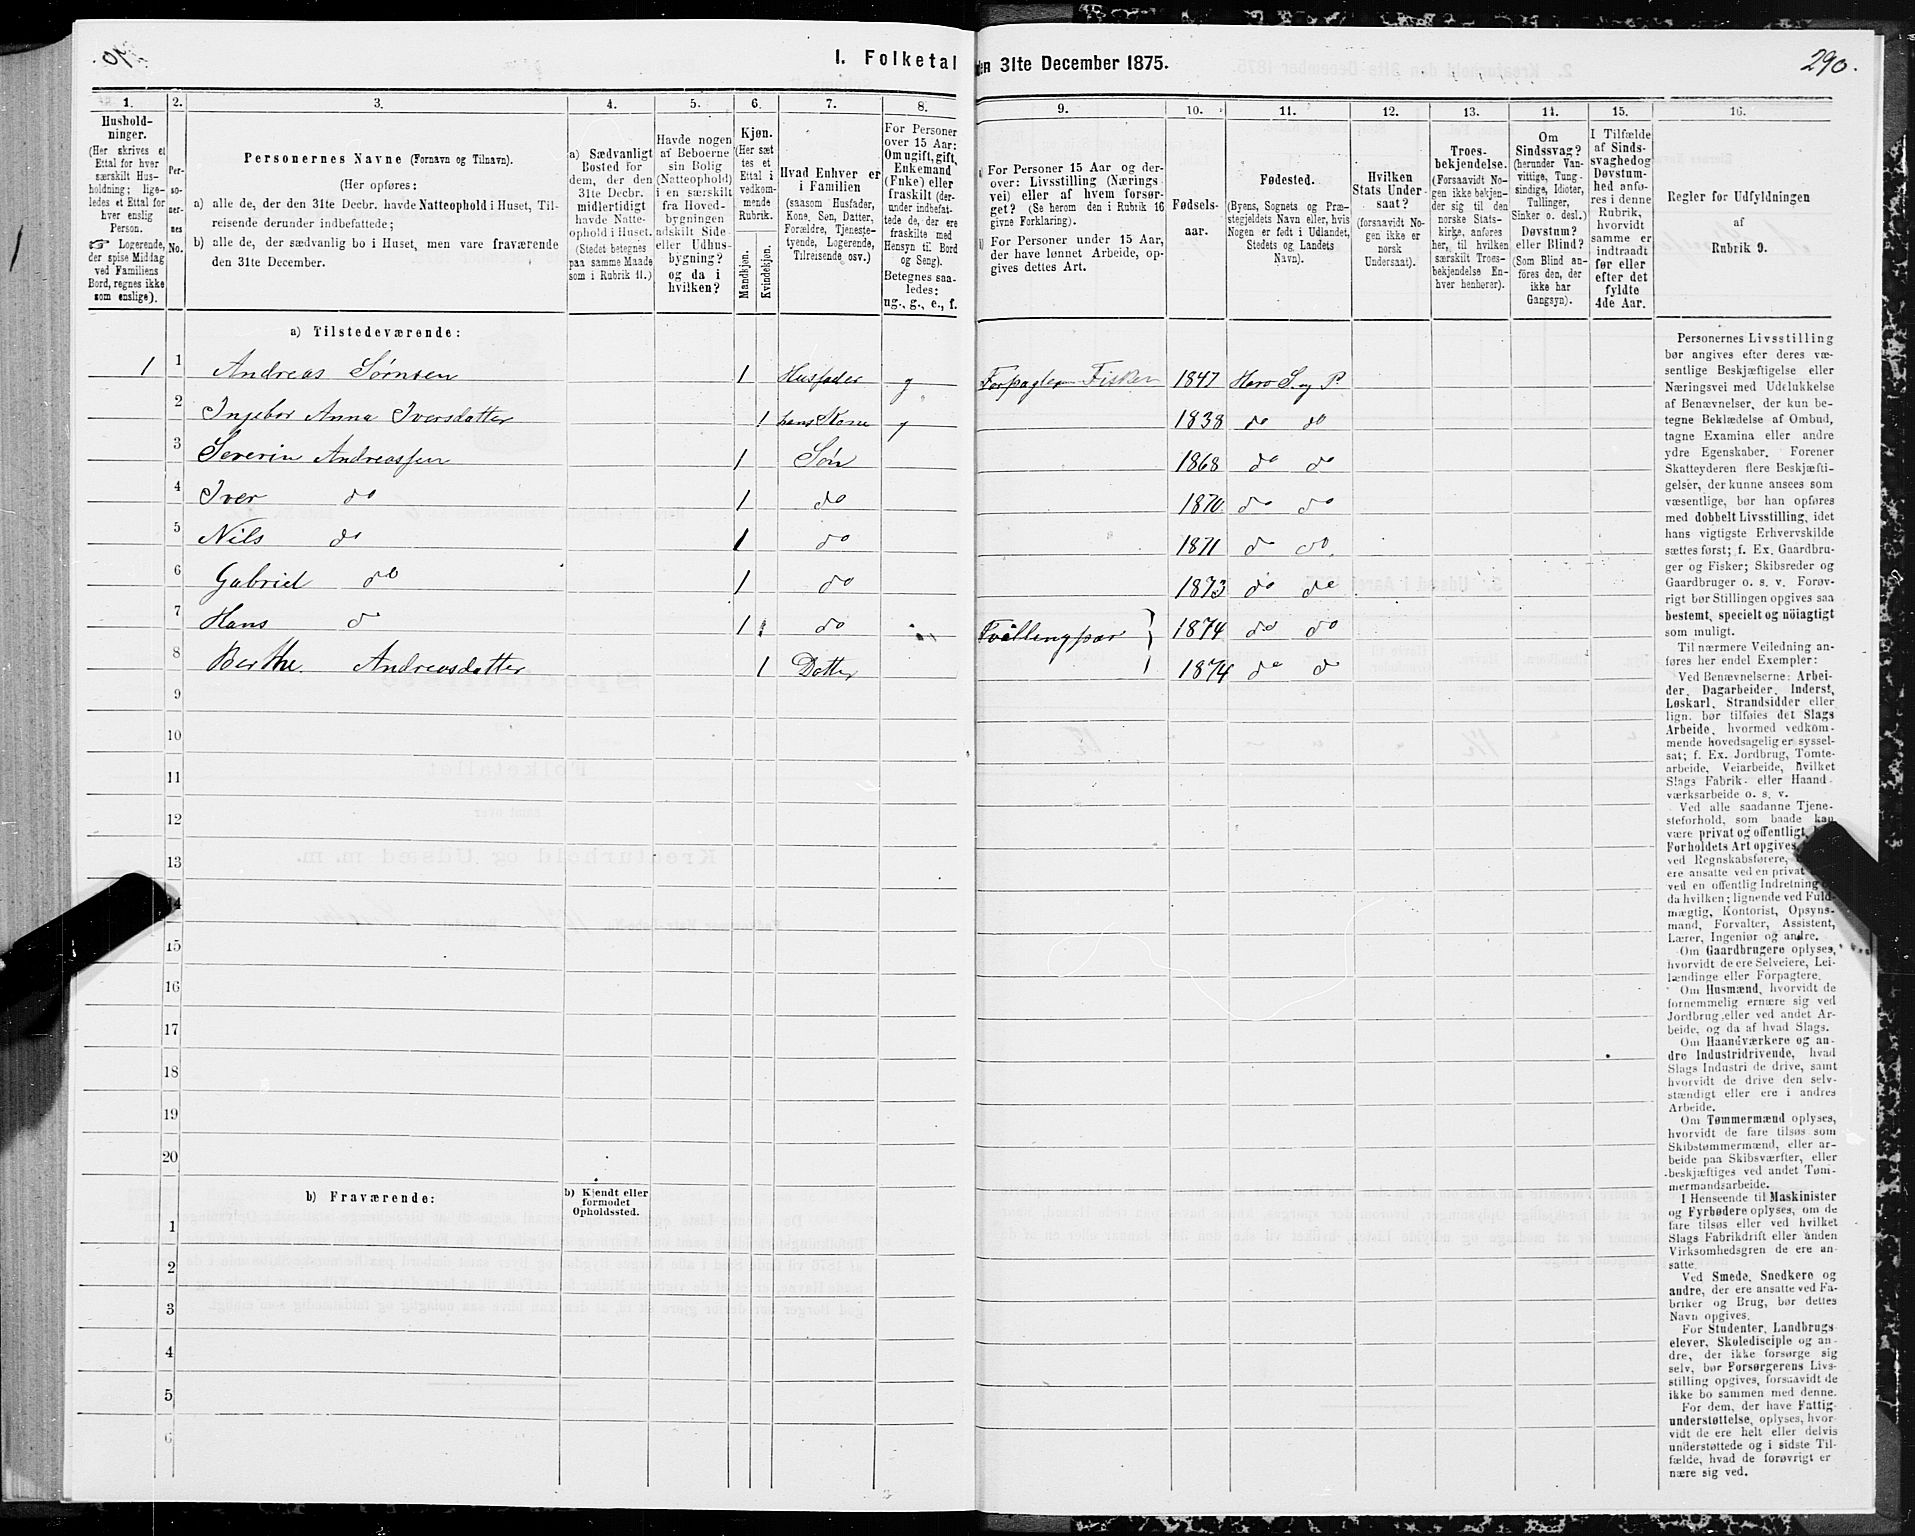 I. Folketal
den 31te December 1875.
290.
1.
2.
3.
4.
5.
6.
7.
8.
9.
10.
11.
12.
13.
14.
15.
16.
Hushold-
ninger.
(Her skrives et
Ettal for hver
særskilt Hus-
holdning; lige-
ledes et Ettal for
hver enslig
Person.
☞ Logerende,
der spise Middag
ved Familiens
Bord, regnes ikke
som enslige).
Per-
so-
ner-
nes
No.
Personernes Navne (Fornavn og Tilnavn).
(Her opføres:
a) alle de, der den 31te Decbr. havde Natteophold i Huset, Til-
reisende derunder indbefattede;
b) alle de, der sædvanlig bo i Huset, men vare fraværende
den 31te December.
a) Sædvanligt
Bosted for
dem, der den
31te Decbr.
midlertidigt
havde Natte-
ophold i Huset.
(Stedet betegnes
paa samme Maade
som i Rubrik 11.)
Havde nogen
af Beboerne
sin Bolig
(Natteophold)
i en særskilt
fra Hoved-
bygningen
adskilt Side-
eller Udhus-
bygning?
og da i
hvilken?
Kjøn.
(Her sæt-
tes et
Ettal i
vedkom-
mende
Rubrik.
Mandkjøn.
Kvindekjøn.
Hvad Enhver er
i Familien
(saasom Husfader,
Kone, Søn, Datter,
Forældre, Tjeneste-
tyende, Logerende,
Tilreisende osv.)
For Personer
over 15 Aar:
Om ugift, gift,
Enkemand
(Enke) eller
fraskilt (der-
under indbefat-
tede de, der ere
fraskilte med
Hensyn til Bord
og Seng).
Betegnes saa-
ledes:
ug., g., e., f.
a) For Personer 15 Aar og der-
over: Livsstilling (Nærings-
vei) eller af hvem forsør-
get? (Se herom den i Rubrik 16
givne Forklaring).
b) For Personer under 15 Aar,
der have lønnet Arbeide, op-
gives dettes Art.
Fødsels-
aar.
Fødested.
(Byens, Sognets og Præ-
stegjeldets Navn eller, hvis
Nogen er født i Udlandet,
Stedets og Landets
Navn).
Hvilken
Stats Under-
saat?
(forsaavidt No-
gen ikke er
norsk
Undersaat).
Troes-
bekjendelse.
(Forsaavidt No-
gen ikke bekjen-
der sig til den
norske Stats-
kirke, anføres
her, til hvilken
særskilt Troes-
bekjendelse En-
hver henhører).
Om
Sindssvag?
(herunder Van-
vittige, Tung-
sindige, Idioter,
Tullinger,
Sinker o. desl.)
Døvstum?
eller Blind?
(Som Blind an-
føres den, der
ikke har
Gangsyn).
I Tilfælde
af Sinds-
svaghed og
Døvstum-
hed anfø-
res i denne
Rubrik,
hvorvidt
samme er
indtraadt
før eller
efter det
fyldte
4de Aar.
Regler for Udfyldningen
af
Rubrik 9.
a) Tilstedeværende:
1 1 Andreas Sørnsen 1 Husfader g Forpagter Fisker 1847 Harø S. og P.
2 Ingebor Anna Iversdatter 1 hans Kone g 1838 do do
3 Severin Andreassen 1 Søn 1868 do do
4 Iver do 1 do 1870 do do
5 Nils do 1 do 1871 do do
6 Gabriel do 1 do 1873 do do
7 Hans do 1 do Tvillingpar 1874 do do
8 Berthe Andreasdatter 1 Datter 1874 do do
9
10
11
12
13
14
15
16
17
18
19
20
b) Fraværende:
b) Kjendt eller
formodet
Opholdssted.
1
2
3
4
5
6
Personernes Livsstilling
bør angives efter deres væ-
sentlige Beskjæftigelse eller
Næringsvei med Udelukkelse
af Benævnelser, der kun be-
tegne Beklædelse af Ombud,
tagne Examina eller andre
ydre Egenskaber. Forener
Skatteyderen flere Beskjæfti-
gelser, der kunne ansees som
væsentlige, bør han opføres
med dobbelt Livsstilling, idet
hans vigtigste Erhvervskilde
sættes først; f. Ex. Gaardbru-
ger og Fisker; Skibsreder og
Gaardbruger o. s. v. Forøv-
rigt bør Stillingen opgives saa
bestemt, specielt og nöiagtigt
som muligt.
Til nærmere Veiledning an-
føres her endel Exempler:
Ved Benævnelserne: Arbei-
der, Dagarbeider, Inderst,
Løskarl, Strandsidder eller
lign. bør tilføies det Slags
Arbeide, hvormed vedkom-
mende hovedsagelig er syssel-
sat; f. Ex. Jordbrug, Tomte-
arbeide, Veiarbeide, hvilket
Slags Fabrik- eller Haand-
værksarbeide o. s. v.
Ved alle saadanne Tjene-
steforhold, som baade kan
være privat og offentligt,
Forholdets Art opgives,
ved Regnskabsførere,
ere ansatte ved en privat
ved en offentlig Indretning
da hvilken; lignende ved Fuld-
mægtig, Kontorist, Opsyns-
mand, Forvalter, Assistent,
Lærer, Ingeniør og andre.
Om Gaardbrugere oplyses,
hvorvidt de ere Selveiere, Lei-
lændinge eller Forpagtere.
Om Husmænd, hvorvidt de
fornemmelig ernære sig ved
Jordbrug eller ved andet Ar-
beide, og da af hvad Slags.
Om Haandværkere og an-
dre Industridrivende, hvad
Slags Industri de drive, samt
hvorvidt de drive den selv-
stændigt eller ere i andres
Arbeide.
Om Tømmermænd oplyses,
hvorvidt de fare tilsøs som
Skibstømmermænd, eller ar-
beide paa Skibsværfter, eller
beskjæftiges ved andet Tøm-
mermandsarbeide.
I Henseende til Maskinister
og Fyrbødere oplyses, om de
fare tilsøs eller ved hvilket
Slags Fabrikdrift eller anden
Virksomhedsgren de ere an-
satte.
Ved Smede, Snedkere og
andre, der ere ansatte ved Fa-
briker og Brug, bør dettes
Navn opgives.
For Studenter, Landbrugs-
elever, Skoledisciple og an-
dre, der ikke forsørge sig
selv, bør Forsørgerens Livs-
stilling opgives, forsaavidt de
ikke bo sammen med denne.
For dem, der have Fattig-
understøttelse, oplyses, hvor-
vidt de ere helt eller delvis
understøttede og i sidste Til-
fælde, hvad de forøvrigt er-
nære sig ved.